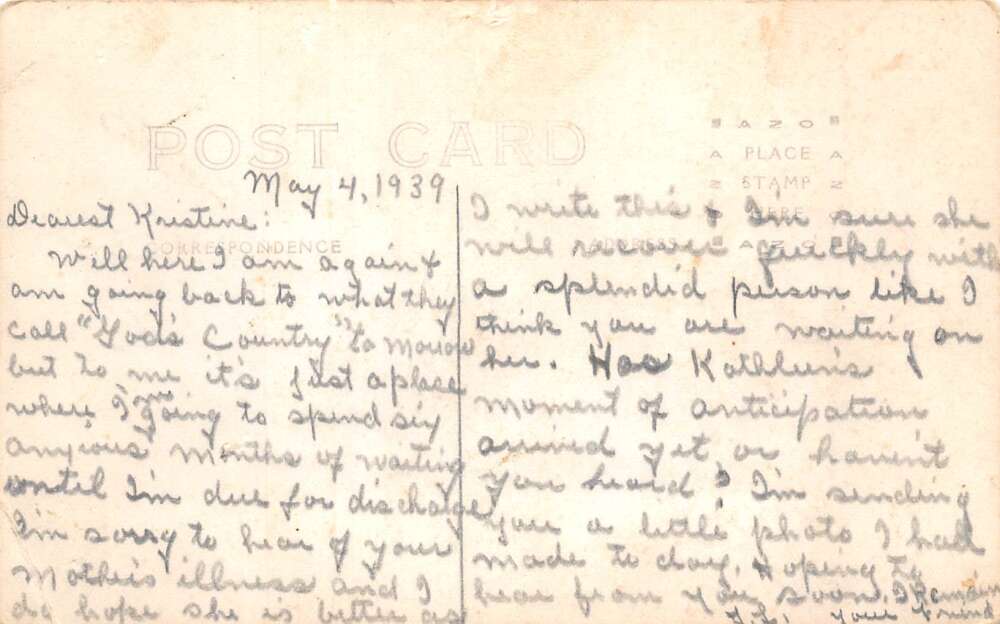 POST CARD
AZO
PLACE
STAMP
HERE
AZO
CORRESPONDENCE
ADDRESS
May 4, 1939
Dearest Kristine:
Well here I am again &
am going back to what they
call "God's Country" to morrow
but to me it's just a place
where I'm going to spend six
anxious months of waiting
until I'm due for discharge
I'm sorry to hear of your
Mother's illness and I
do hope she is better as
I write this & I'm sure she
will recover quickly with
a splendid person like I
think you are waiting on
her. Has Kathleen's
moment of anticipation
arrived yet or haven't
you heard? I'm sending
you a little photo I had
made to day. Hoping to
hear from you soon. I Remain
your Friend